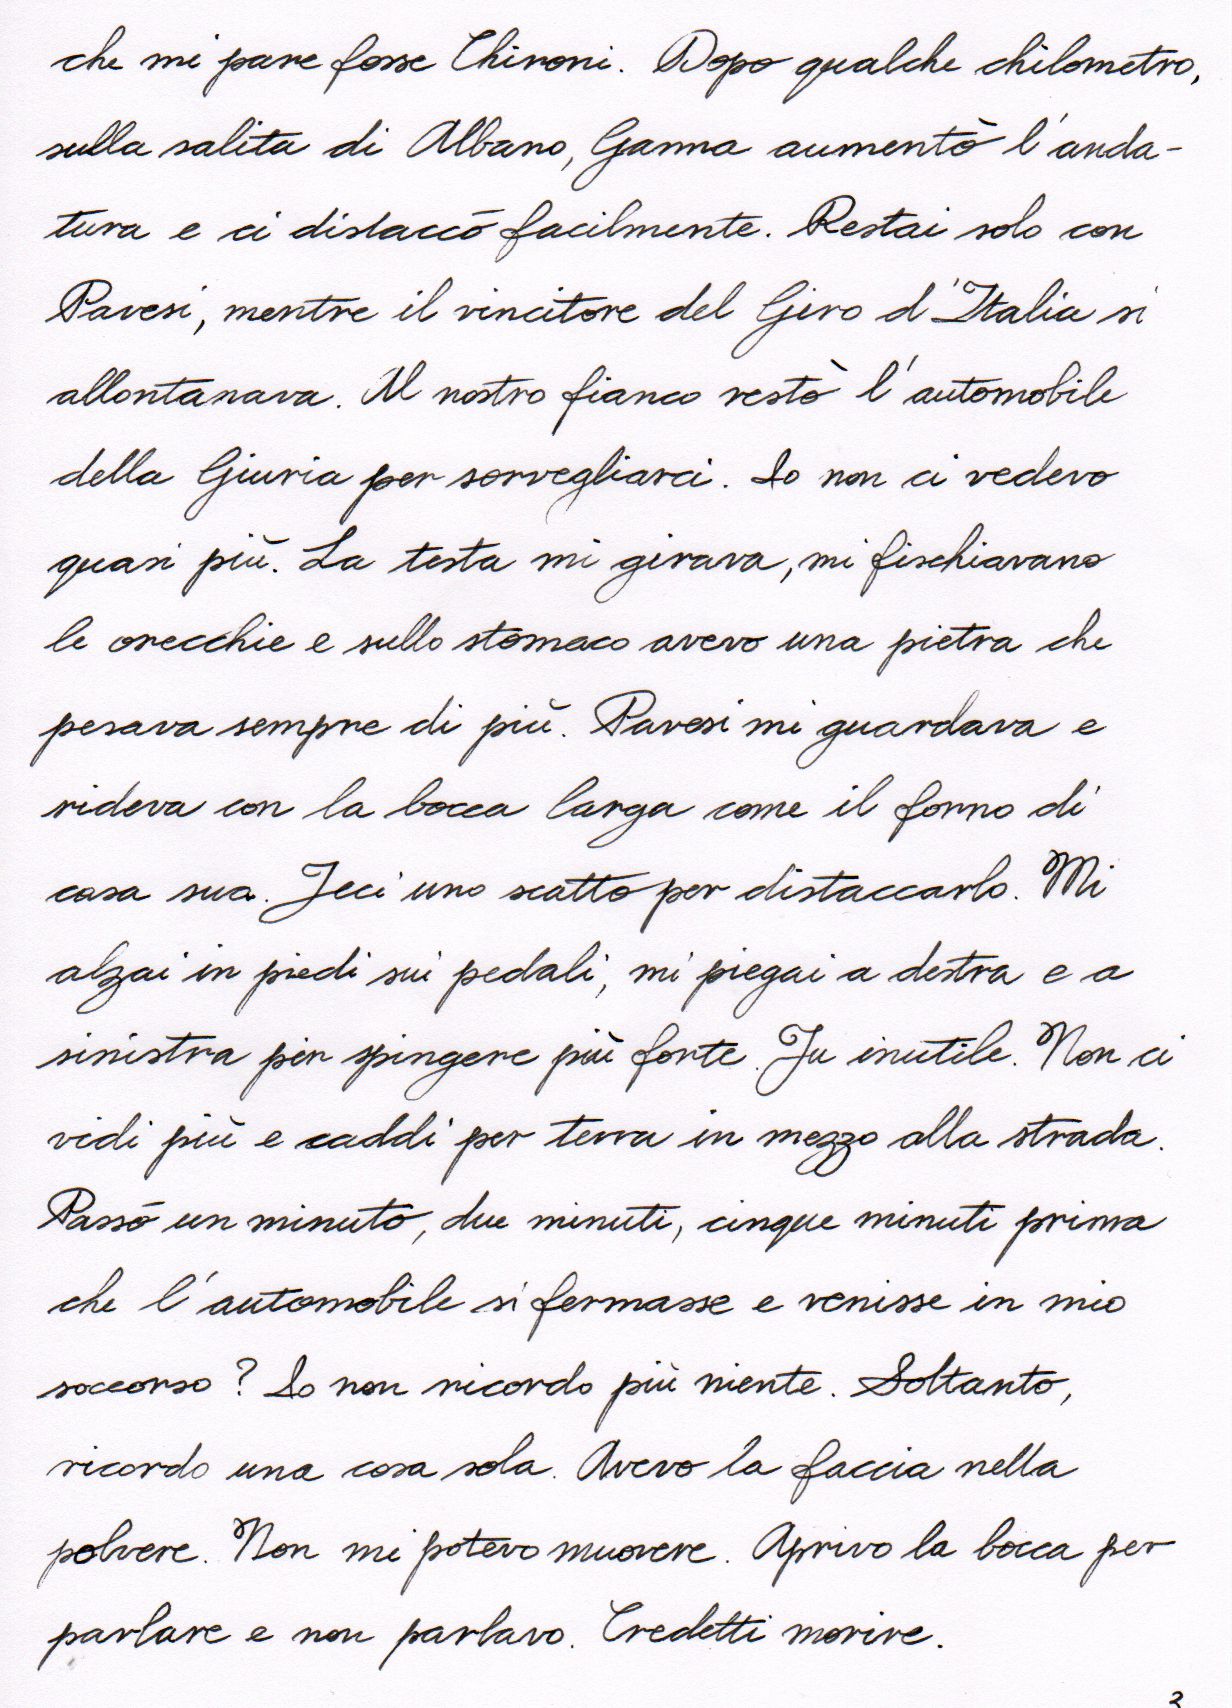 che mi pare fosse Chironi. Dopo qualche chilometro,
sulla salita di Albano, Ganna aumentò l'anda-
tura e ci distaccò facilmente. Restai solo con
Pavesi, mentre il vincitore del Giro d'Italia si
allontanava. Al nostro fianco restò l'automobile
della Giuria per sorvegliarci. Io non ci vedevo
quasi più. La testa mi girava, mi fischiavano
le orecchie e sullo stomaco avevo una pietra che
pesava sempre di più. Pavesi mi guardava e
rideva con la bocca larga come il forno di
casa sua. Feci uno scatto per distaccarlo. Mi
alzai in piedi sui pedali, mi piegai a destra e a
sinistra per spingere più forte. Fu inutile. Non ci
vidi più e caddi per terra in mezzo alla strada.
Passò un minuto, due minuti, cinque minuti prima
che l'automobile si fermasse e venisse in mio
soccorso? Io non ricordo più niente. Soltanto,
ricordo una cosa sola. Avevo la faccia nella
polvere. Non mi potevo muovere. Aprivo la bocca per
parlare e non parlavo. Credetti morire.